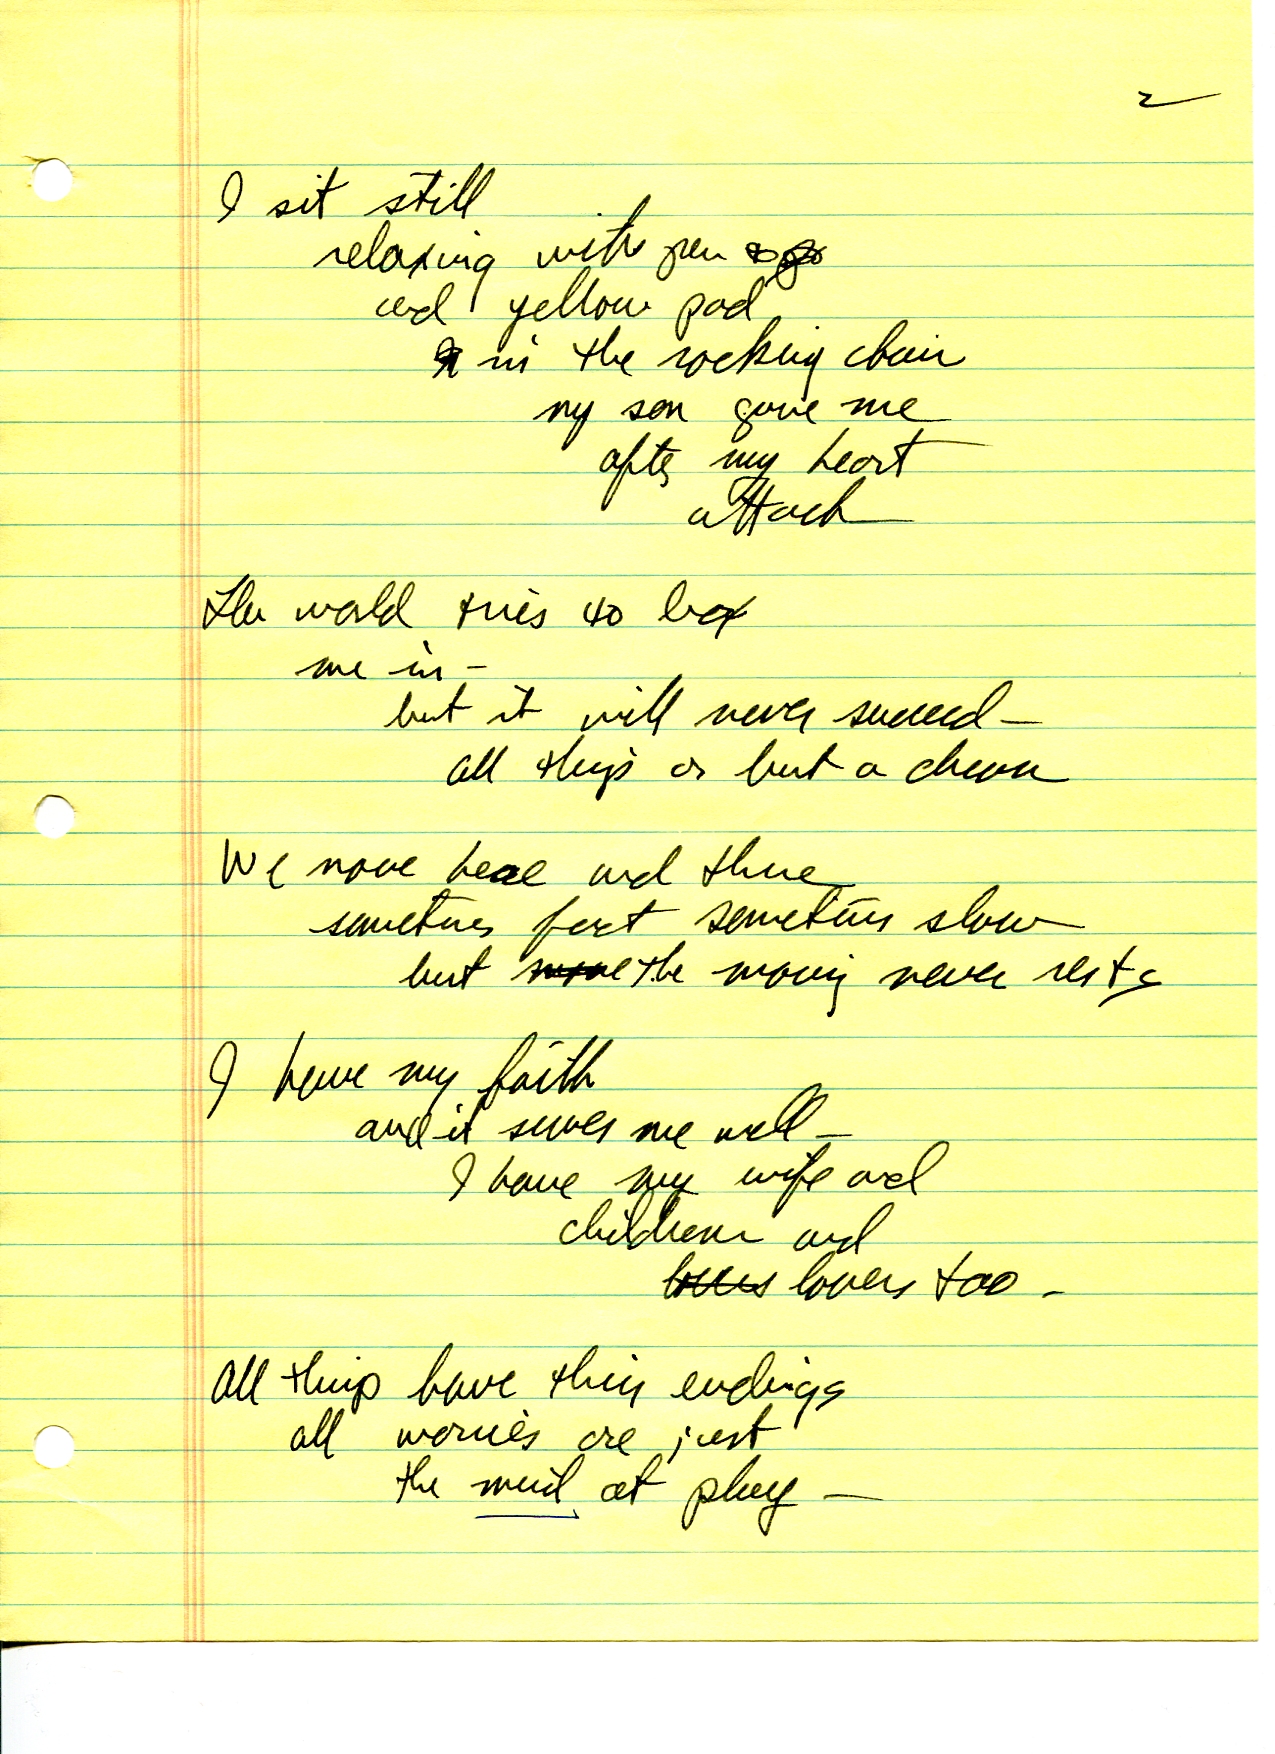 2
I sit still
relaxing with pen
and yellow pad
in the rocking chair
my son gave me
after my heart
attack
The world tries to box
me in -
but it will never succeed -
all things are but a dream
We move here and there
sometimes fast sometimes slow
but the moving never rests
I have my faith
and it serves me well -
I have my wife and
children and
lovers too -
All things have their endings
all worries are just
the mind at play -